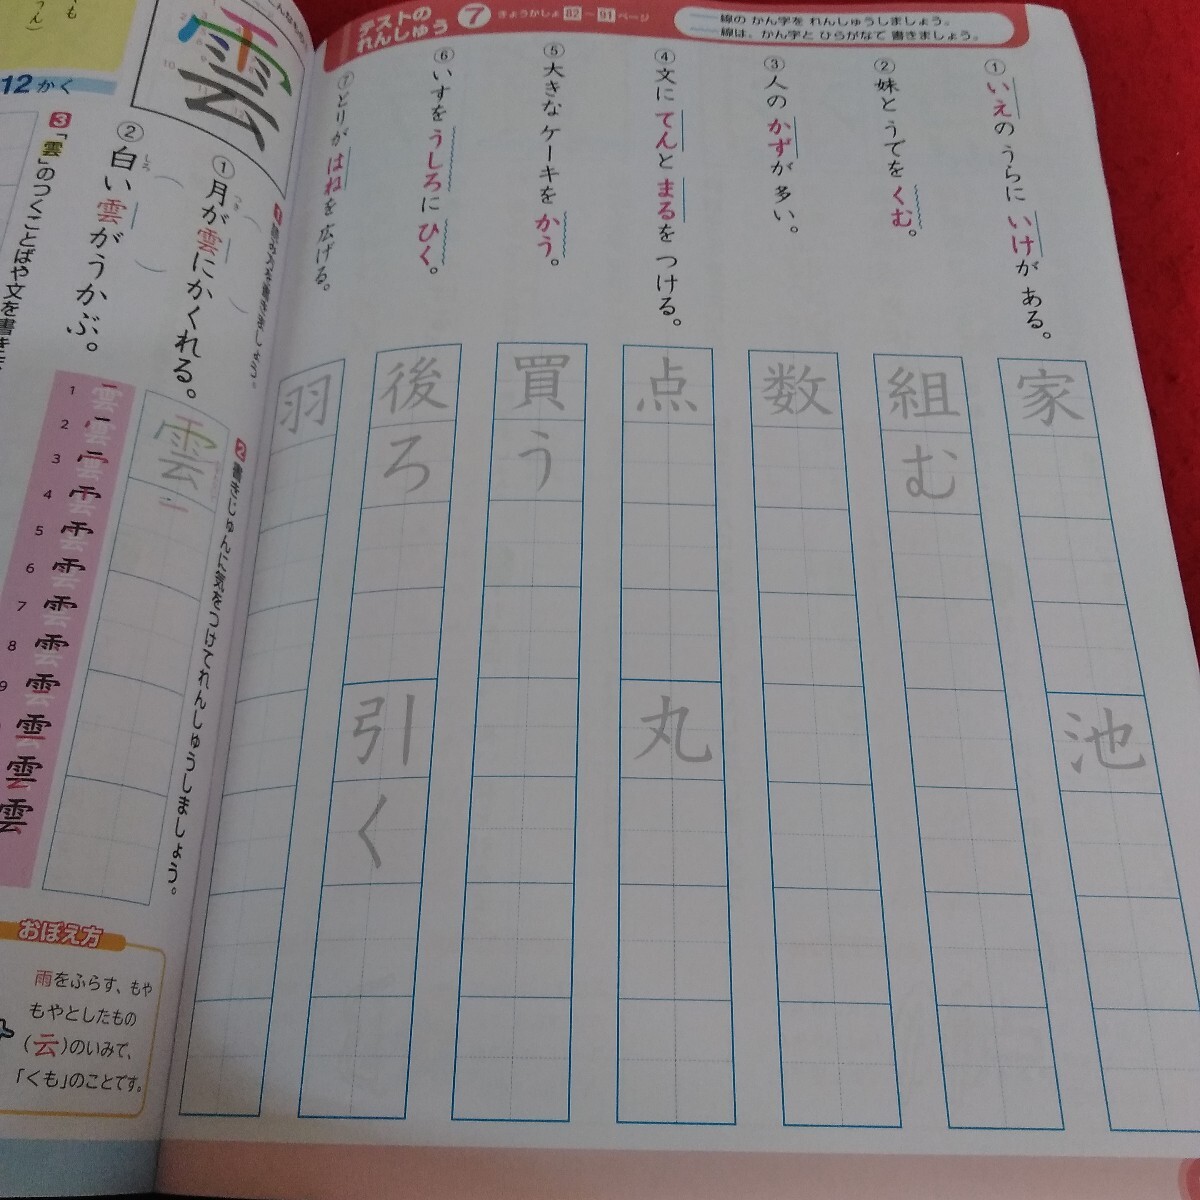 テストの
れんしゅう
7
きょうかしょ82~91ページ
線の かん字を れんしゅうしましょう。
線は、かん字と ひらがなで 書きましょう。
①いえの うらに いけが ある。
②妹と うでを くむ。
③人の かずが 多い。
④文に てんと まるを つける。
⑤大きな ケーキを かう。
⑥いすを うしろに ひく。
⑦とりが はねを 広げる。
家
池
組む
数
点
丸
買う
後ろ
引く
羽
雲
12かく
①月が雲にかくれる。
つき
②白い雲がうかぶ。
しろ
2 書きじゅんに気をつけてれんしゅうしましょう。
雲
3 「雲」のつくことばや文を書き
1
2
3
4
5
6
7
8
9
雲
おぼえ方
雨をふらす、もや
もやとしたもの
(云)のいみで、
「くも」のことです。